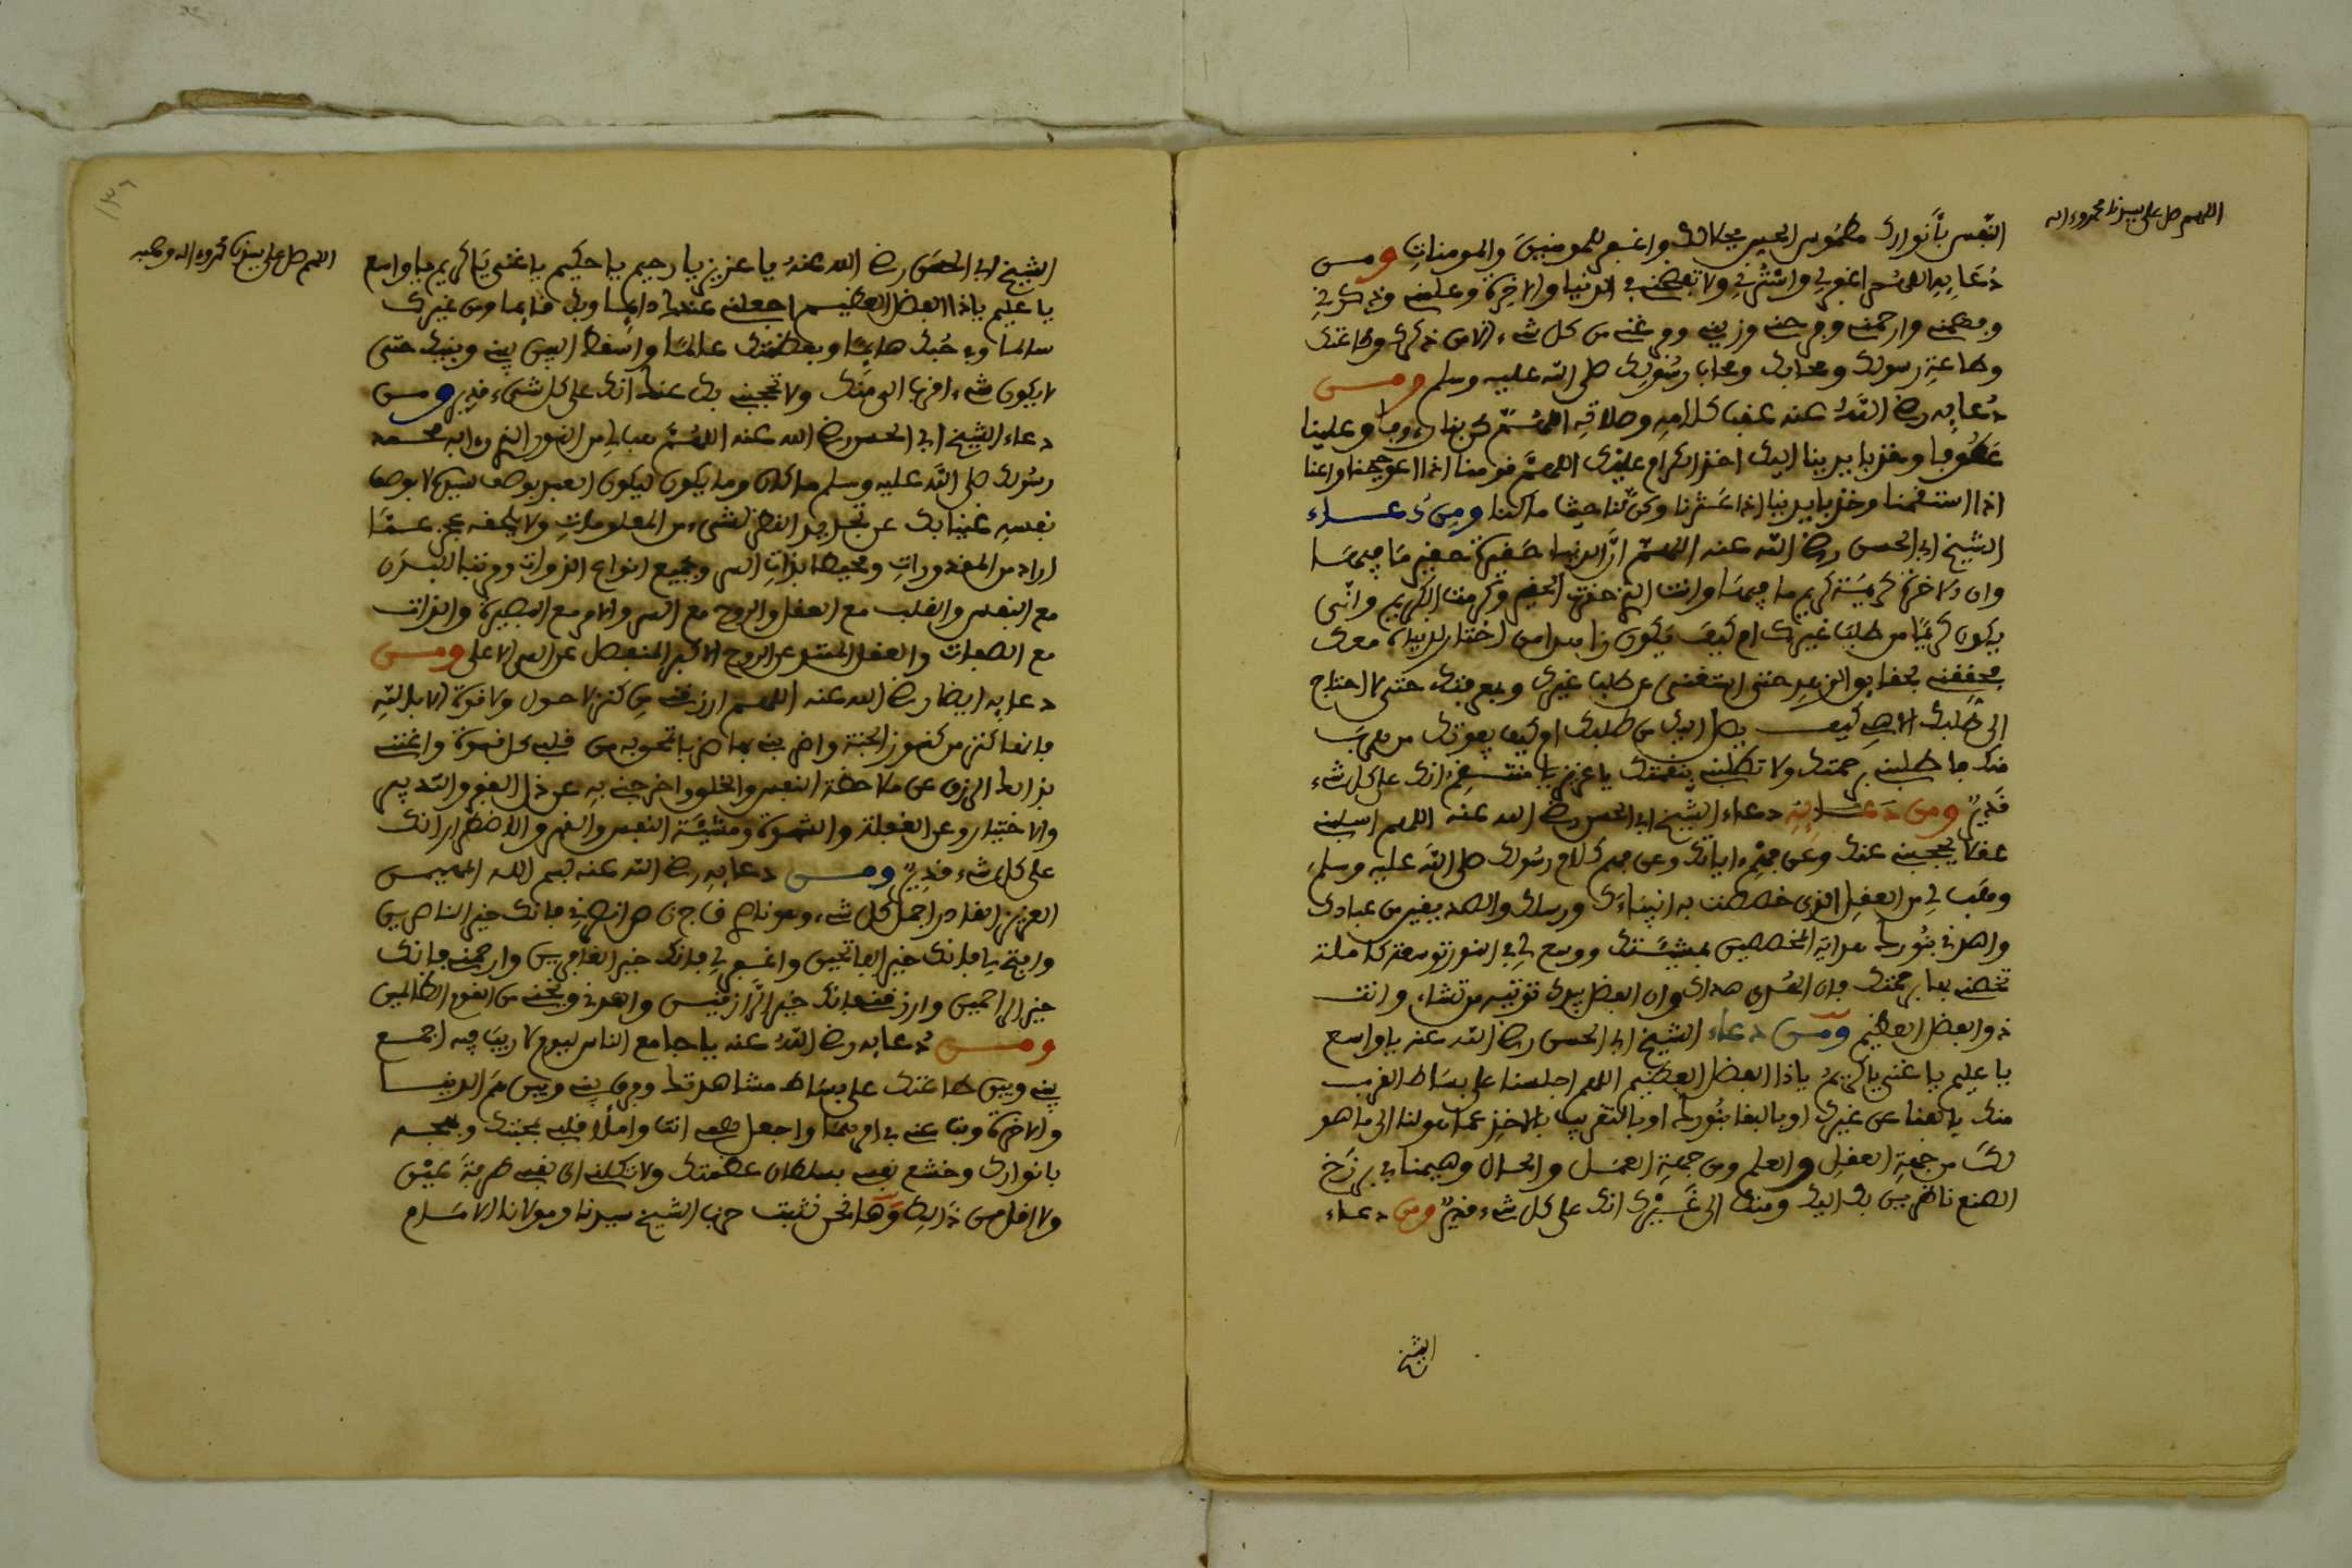 اللهم صل على سيدنا محمد وءاله
النفس بأنوارك مطموس الحس بجلالك واغفر للمومنين والمومنات ومن
دعايه اللهم اغفر لي واسترني ولا تفضحني في الدنيا والاخرة وعلمني وذكرني
وفهمني وارحمني وفرحني وزيني وفرغني من كل شيء الا من ذكرك وطاعتك
وطاعة رسولك ومحابك ومحاب رسولك صلى الله عليه وسلم ومن
دعايه رضي الله عنه عقب كلامه وصلاته اللهم كن بنا رءوفا وعلينا
عطوفا وخذ بايدينا اليك اخذ الكرام عليك اللهم قومنا اذا اعوججنا واعنا
اذا استقمنا وخذ بايدينا اذا عثرنا وكن لنا حيث ما كنا ومن دعاء
الشيخ ابي الحسن رضي الله عنه اللهم ان الدنيا حقيرة حقير ما فيها
وان الاخرة كريمة كريم ما فيها وانت الذي حقرت الحقير وكرمت الكريم وانى
يكون كريما من طلب غيرك ام كيف يكون زاهدا من اختار الدنيا معك
فحققني بحقايق الزهد حتى استغني عن طلب غيرك وبمعرفتك حتى لا احتاج
الى طلبك الاهي كيف يصل اليك من طلبك ام كيف يفوتك من هرب
منك فاطلبني برحمتك ولا تطلبني بنقمتك يا عزيز يا منتقم انك على كل شيء
قدير ومن دعايه دعاء الشيخ ابي الحسن رضي الله عنه اللهم اسلبني
عقلا يحجبني عنك وعن فهم ءاياتك وعن فهم كلام رسولك صلى الله عليه وسلم
وهب لي من العقل الذي خصصت به انبياءك ورسلك والصديقين من عبادك
واهدني بنورك هداية المخصصين بمشيئتك ووسع لي في النور توسعة كاملة
تخصني بها برحمتك فان الهدى هداك وان الفضل بيدك توتيه من تشاء وانت
ذو الفضل العظيم ومن دعاء الشيخ ابي الحسن رضي الله عنه يا واسع
يا عليم يا غني يا كريم يا ذا الفضل العظيم اللهم اجلسنا على بساط القرب
منك بالفنا عن غيرك او بالبقا بنورك او بالتقريب بالاخذ عما هو لنا الى ما هو
لك من جهة العقل والعلم ومن جهة العمل والحال وهيمنا في برزخ
الصنع ناظرين بك اليك ومنك الى غيرك انك على كل شيء قدير ومن دعاء
الشيخ
١٣٦
اللهم صل على سيدنا محمد وءاله وصحبه
الشيخ ابي الحسن رضي الله عنه يا عزيز يا رحيم يا حكيم يا غني يا كريم يا واسع
يا عليم يا ذا الفضل العظيم اجعلني عندك دايما وبك قايما ومن غيرك
سالما وفي حبك هايما وبعظمتك عالما واسقط البين بيني وبينك حتى
لا يكون شيء اقرب الي منك ولا تحجبني بك عنك انك على كل شيء قدير ومن
دعاء الشيخ ابي الحسن رضي الله عنه اللهم هب لي من النور الذي رءا به محمد
رسولك صلى الله عليه وسلم ما كان وما يكون ليكون العبد بوصف سيده لا بوصف
نفسه غنيا بك عن تجديد النظر لشيء من المعلومات ولا يلحقه عجز عما
اراد من المقدورات ومحيطا بذات السر وجميع انواع الذوات ومرتبا البدن
مع النفس والقلب مع العقل والروح مع السر والامر مع البصيرة والذات
مع الصفات والعقل الممتد عن الروح الاكبر المنفصل عن السر الاعلى ومن
دعايه ايضا رضي الله عنه اللهم ارزقني من كنز لا حول ولا قوة الا بالله
فانها كنز من كنوز الجنة واضربني بها ضربا تمحو به من قلبي كل قوة واغنني
بذلك الرزق عن ملاحظة النفس والخلق واخرجني به عن ذل الفقر والتدبير
والاختيار وعن الغفلة والشهوة ومشيئة النفس والقهر والاضطرار انك
على كل شيء قدير ومن دعايه رضي الله عنه بسم الله المهيمن
العزيز القادر اجعل كل شيء وهو ناصر انصرني فانك خير الناصرين
وافتح لي فانك خير الفاتحين واغفر لي فانك خير الغافرين وارحمني فانك
خير الراحمين وارزقني فانك خير الرازقين واهدني ونجني من القوم الظالمين
ومن دعايه رضي الله عنه يا جامع الناس ليوم لا ريب فيه اجمع
بيني وبين طاعتك على بساط مشاهدتك وفرق بيني وبين هم الدنيا
والاخرة ونب عني في امرهما واجعل همي انت واملأ قلبي بمحبتك وبهجه
بانوارك وخشع نفسي بسلطان عظمتك ولا تكلني الى نفسي طرفة عين
ولا اقل من ذلك وها نحن نثبت حزب الشيخ سيدنا ومولانا الامام